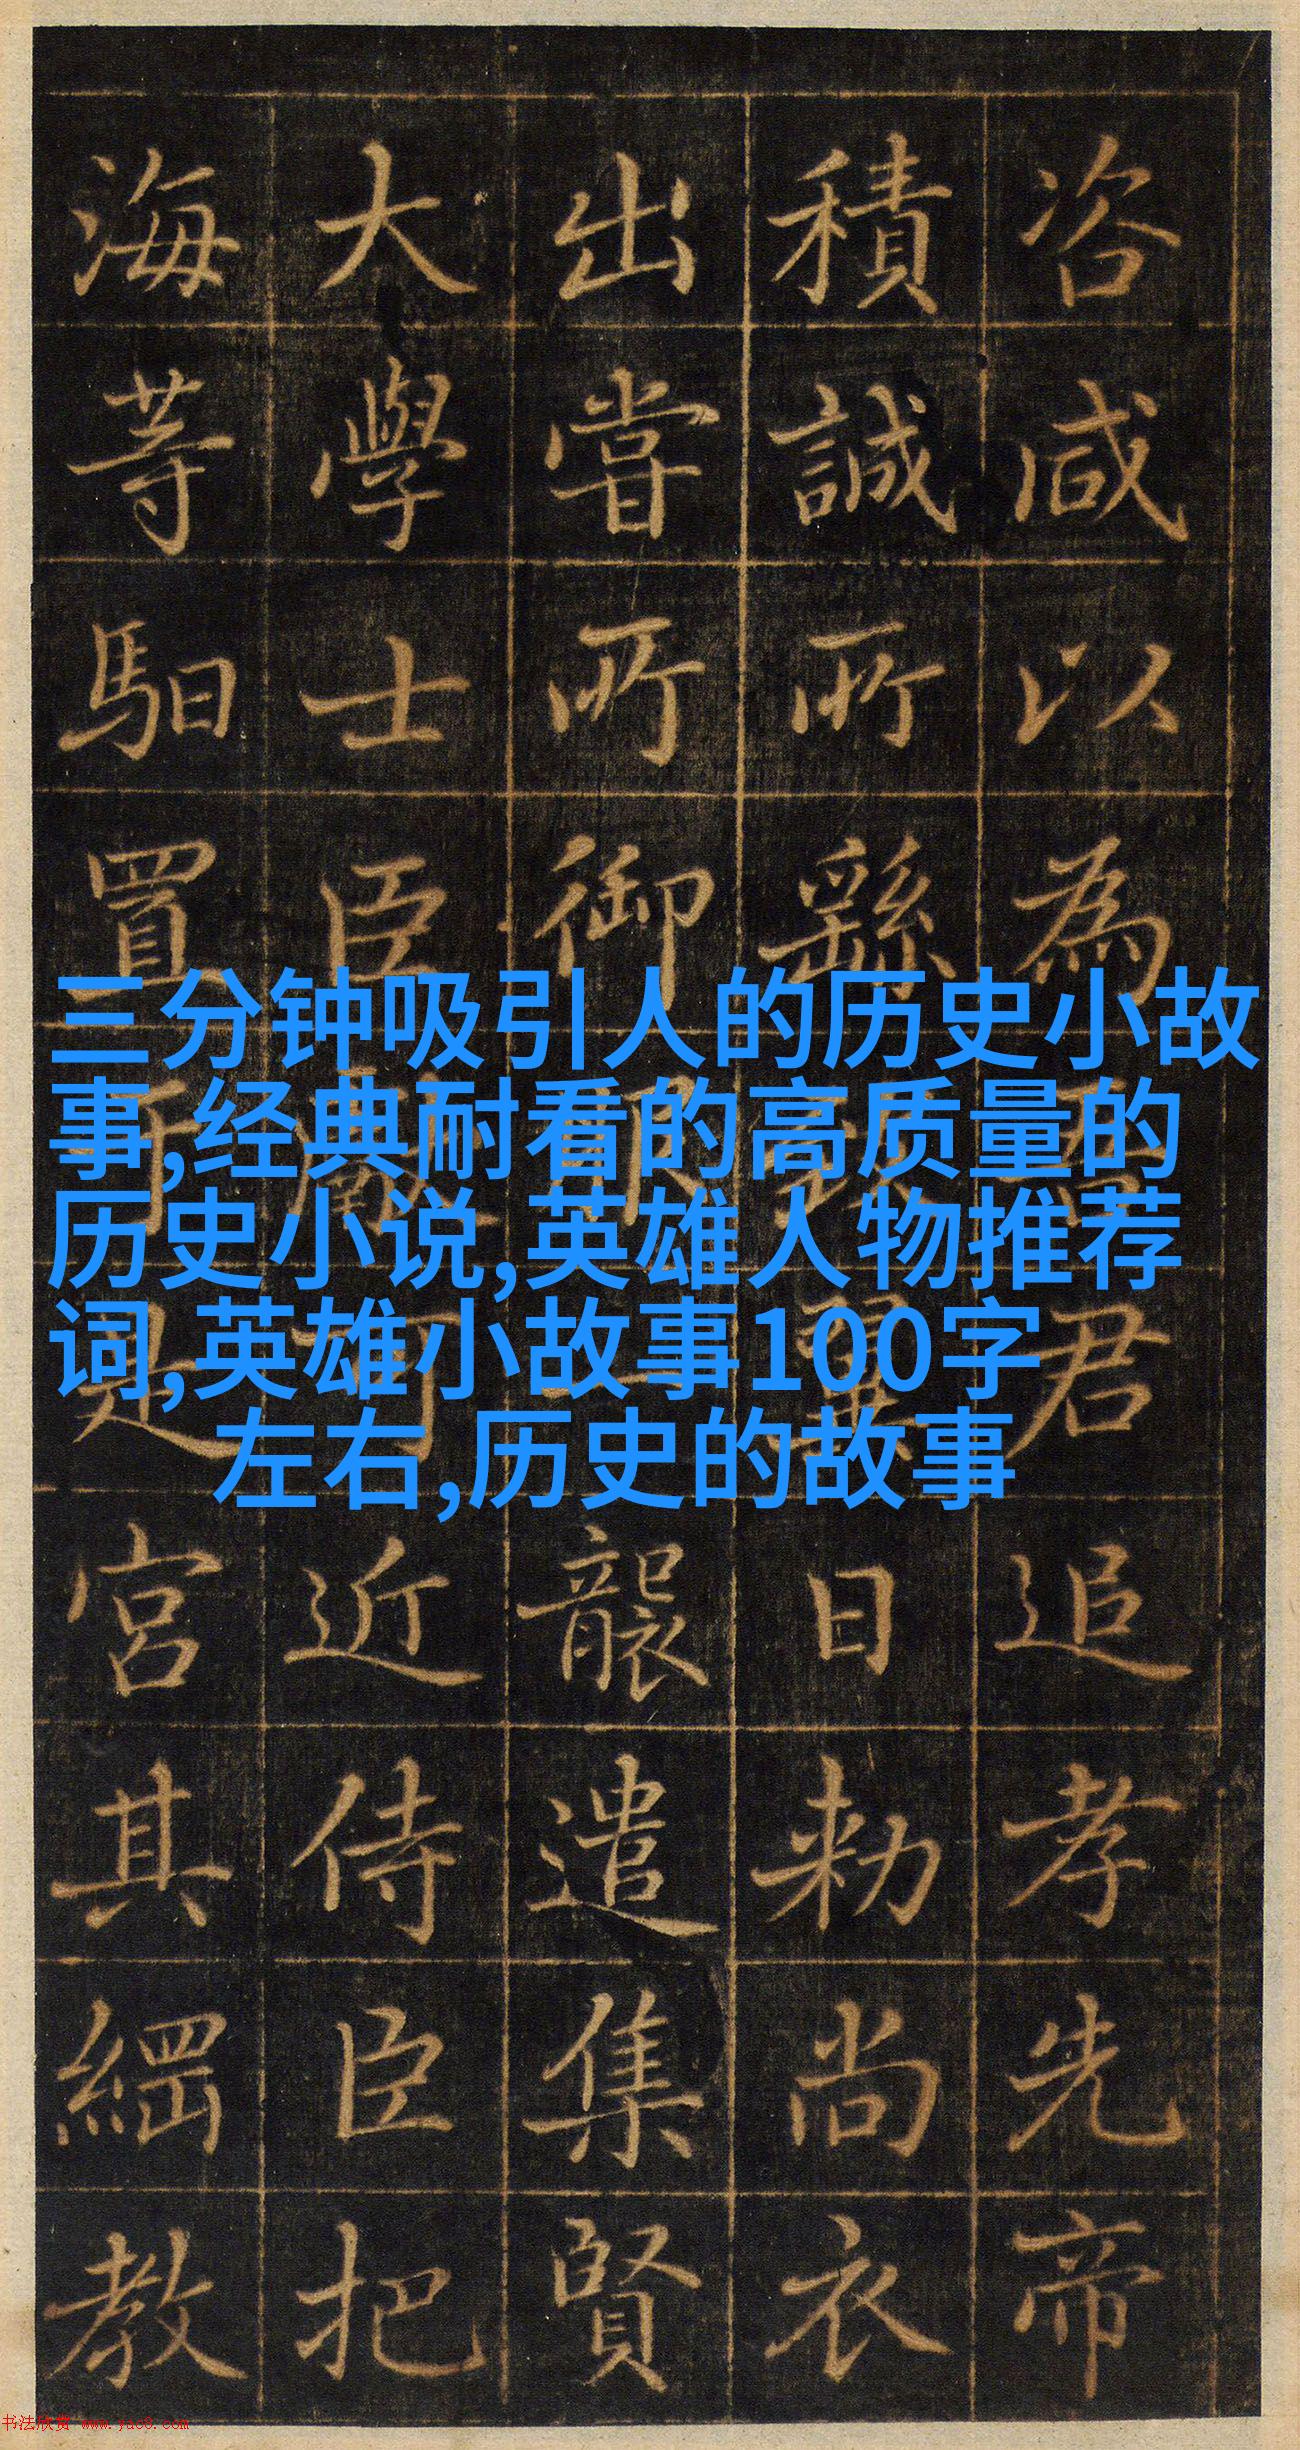 咨咸以為君追孝先帝
積誠所繇翼日勑尚衣
出嘗所御服一襲遣集賢
大學士臣可近侍臣把
海等馹置是宮其綱教
三分钟吸引人的历史小故
事,经典耐看的高质量的
历史小说,英雄人物推荐
词,英雄小故事100字
左右,历史的故事
书法欣赏 www.yac8.com